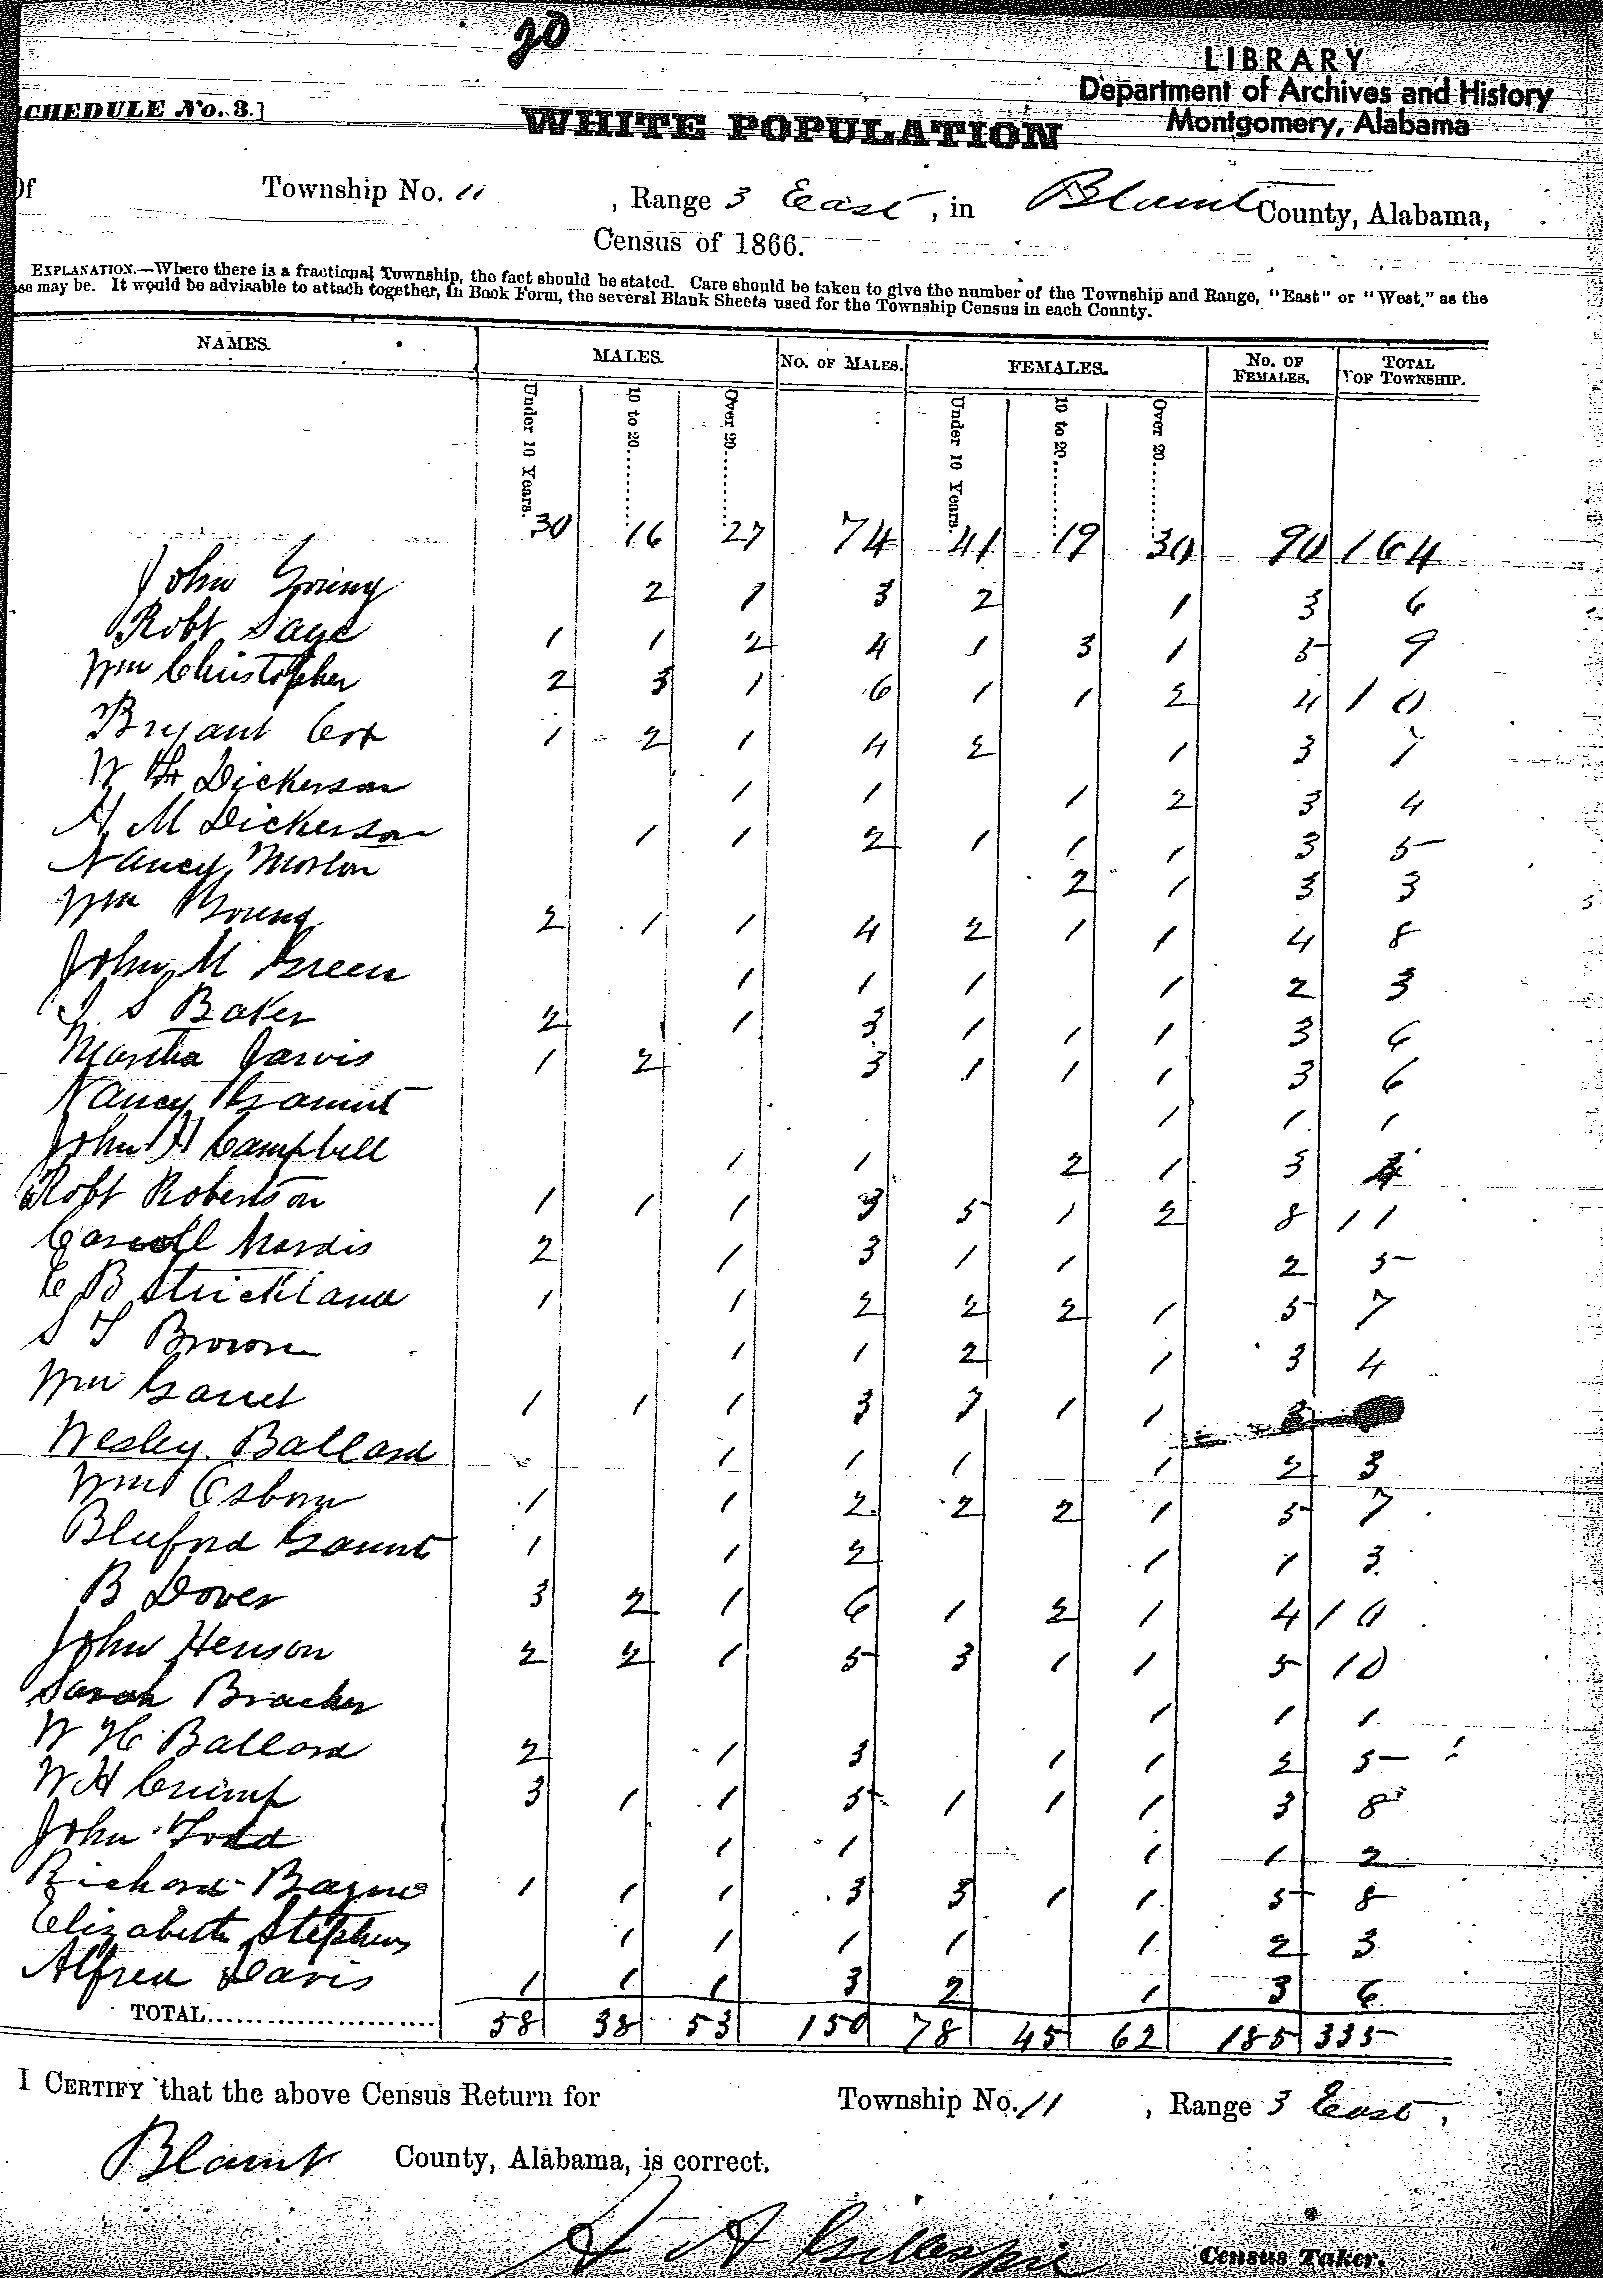 20
LIBRARY
Department of Archives and History
Montgomery, Alabama
SCHEDULE No. 3.]
WHITE POPULATION
Of Township No. 11, Range 3 East, in Blount County, Alabama,
Census of 1866.
EXPLANATION.—Where there is a fractional Township, the fact should be stated. Care should be taken to give the number of the Township and Range, "East" or "West," as the
case may be. It would be advisable to attach together, in Book Form, the several Blank Sheets used for the Township Census in each County.
NAMES. MALES. No. OF MALES. FEMALES. No. OF FEMALES. TOTAL OF TOWNSHIP.
Under 10 Years. 10 to 20 Over 20 Under 10 Years. 10 to 20 Over 20
30 16 27 74 41 19 30 90 164
John Young 2 1 3 2 1 3 6
Robt Saye 1 1 2 4 1 3 1 5 9
Wm Christopher 2 3 1 6 1 1 2 4 10
Bryant Cox 1 2 1 4 2 1 3 7
W H Dickerson 1 1 1 2 3 4
A M Dickerson 1 1 2 1 1 1 3 5
Nancy Morton 2 1 3 3
Wm Young 2 1 1 4 2 1 1 4 8
John M Green 1 1 1 1 2 3
S Baker 2 1 3 1 1 1 3 6
Martha Jarvis 1 2 3 1 1 1 3 6
Nancy Gaunt 1 1 1
John H Campbell 1 1 2 1 3 4
Robt Roberson 1 1 1 3 5 1 2 8 11
Carroll Nardis 2 1 3 1 1 2 5
E B Strickland 1 1 2 2 2 1 5 7
S T Brown 1 1 2 1 3 4
Wm Garret 1 1 1 3 7 1 1
Wesley Ballard 1 1 1 1 2 3
Wm Osborn 1 1 2 2 2 1 5 7
Bluford Gaunt 1 1 2 1 1 3
B Dover 3 2 1 6 1 2 1 4 10
John Henson 2 2 1 5 3 1 1 5 10
Sarah Bracker 1 1 1
W H Ballard 2 1 3 1 1 2 5
W H Crump 3 1 1 5 1 1 1 3 8
John Todd 1 1 1 1 2
Richard Bayne 1 1 1 3 3 1 1 5 8
Elizabeth Stephens 1 1 1 1 1 2 3
Alfred Davis 1 1 1 3 2 1 3 6
TOTAL 58 38 53 150 78 45 62 185 335
I CERTIFY that the above Census Return for Township No. 11, Range 3 East,
Blount County, Alabama, is correct.
A Gillespie Census Taker.